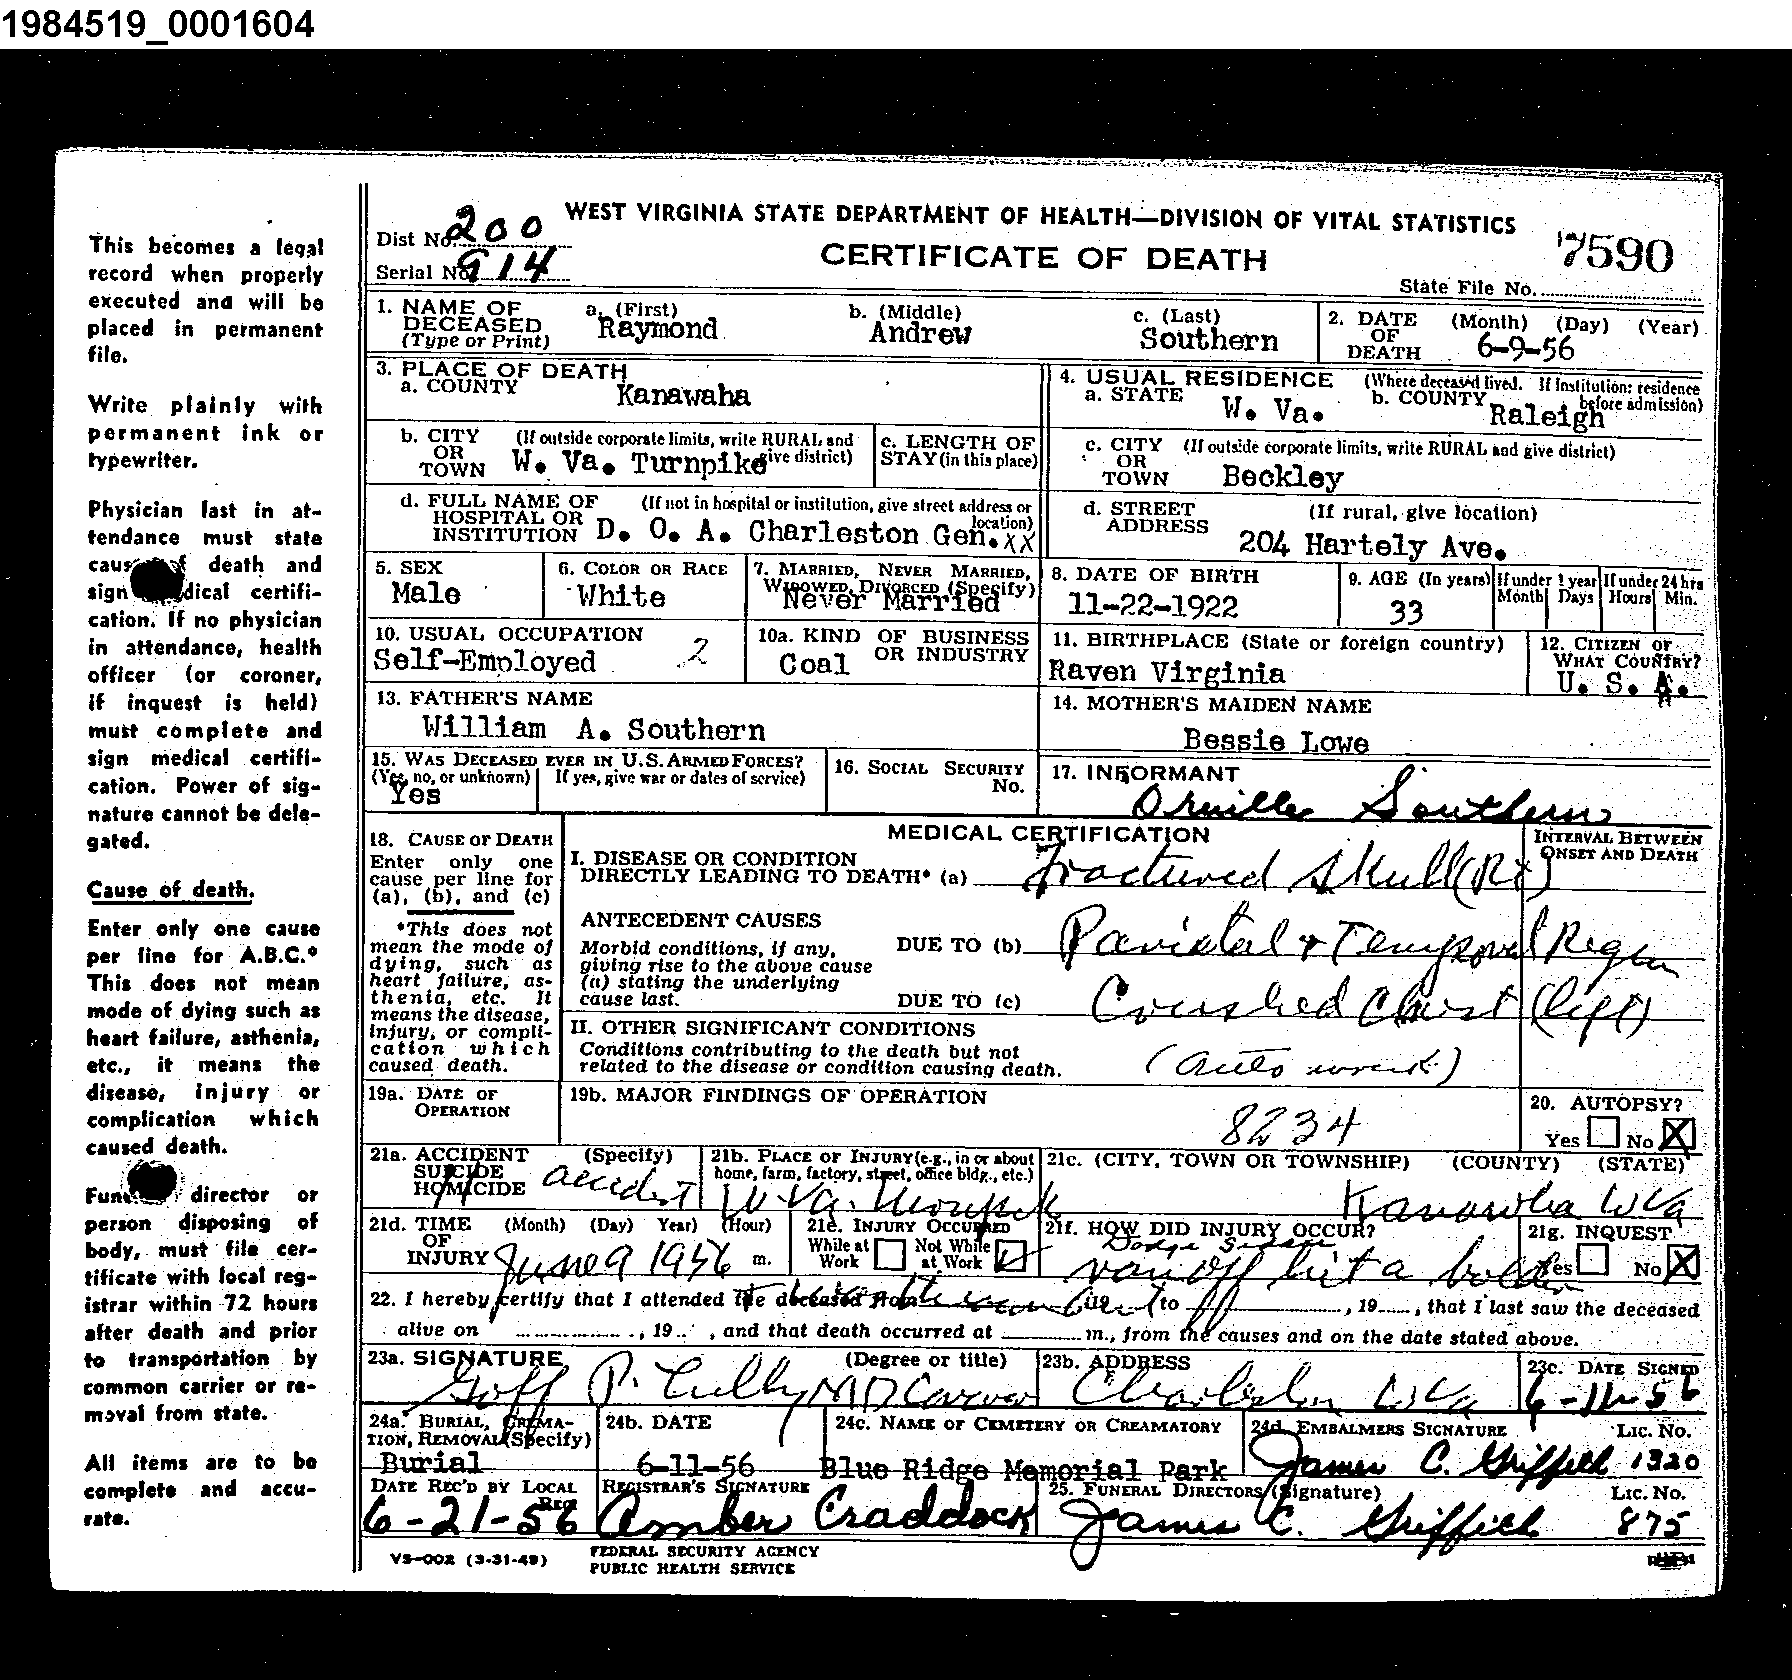 1984519_0001604
This becomes a legal
record when properly
executed and will be
placed in permanent
file.
Write plainly with
permanent ink or
typewriter.
Physician last in at-
tendance must state
cause of death and
sign medical certifi-
cation. If no physician
in attendance, health
officer (or coroner,
if inquest is held)
must complete and
sign medical certifi-
cation. Power of sig-
nature cannot be dele-
gated.
Cause of death.
Enter only one cause
per line for A.B.C.*
This does not mean
mode of dying such as
heart failure, asthenia,
etc., it means the
disease, injury or
complication which
caused death.
Funeral director or
person disposing of
body, must file cer-
tificate with local reg-
istrar within 72 hours
after death and prior
to transportation by
common carrier or re-
moval from state.
All items are to be
complete and accu-
rate.
WEST VIRGINIA STATE DEPARTMENT OF HEALTH—DIVISION OF VITAL STATISTICS
Dist No. 200
CERTIFICATE OF DEATH
7590
Serial No. 914
State File No.
1. NAME OF DECEASED (Type or Print)
a. (First) Raymond
b. (Middle) Andrew
c. (Last) Southern
2. DATE OF DEATH (Month) (Day) (Year) 6-9-56
3. PLACE OF DEATH
a. COUNTY Kanawaha
4. USUAL RESIDENCE (Where deceased lived. If institution: residence before admission)
a. STATE W. Va.
b. COUNTY Raleigh
b. CITY OR TOWN (If outside corporate limits, write RURAL and give district) W. Va. Turnpike
c. LENGTH OF STAY (in this place)
c. CITY OR TOWN (If outside corporate limits, write RURAL and give district) Beckley
d. FULL NAME OF HOSPITAL OR INSTITUTION (If not in hospital or institution, give street address or location) D. O. A. Charleston Gen. XX
d. STREET ADDRESS (If rural, give location) 204 Hartely Ave.
5. SEX Male
6. COLOR OR RACE White
7. MARRIED, NEVER MARRIED, WIDOWED, DIVORCED (Specify) Never Married
8. DATE OF BIRTH 11-22-1922
9. AGE (In years) 33
If under 1 year Month Days
If under 24 hrs Hours Min.
10. USUAL OCCUPATION Self-Employed 2
10a. KIND OF BUSINESS OR INDUSTRY Coal
11. BIRTHPLACE (State or foreign country) Raven Virginia
12. CITIZEN OF WHAT COUNTRY? U. S. A.
13. FATHER'S NAME William A. Southern
14. MOTHER'S MAIDEN NAME Bessie Lowe
15. WAS DECEASED EVER IN U.S. ARMED FORCES?
(Yes, no, or unknown) Yes
If yes, give war or dates of service)
16. SOCIAL SECURITY No.
17. INFORMANT Orville Southern
18. CAUSE OF DEATH
Enter only one cause per line for (a), (b), and (c)
*This does not mean the mode of dying, such as heart failure, asthenia, etc. It means the disease, injury, or complication which caused death.
MEDICAL CERTIFICATION
INTERVAL BETWEEN ONSET AND DEATH
I. DISEASE OR CONDITION DIRECTLY LEADING TO DEATH* (a) Fractured Skull (Rt)
ANTECEDENT CAUSES
Morbid conditions, if any, giving rise to the above cause (a) stating the underlying cause last.
DUE TO (b) Parietal + Temporal Region
DUE TO (c) Crushed Chest (left)
II. OTHER SIGNIFICANT CONDITIONS
Conditions contributing to the death but not related to the disease or condition causing death.
(Auto wreck)
19a. DATE OF OPERATION
19b. MAJOR FINDINGS OF OPERATION
8234
20. AUTOPSY? Yes No X
21a. ACCIDENT SUICIDE HOMICIDE (Specify) accident
21b. PLACE OF INJURY (e.g., in or about home, farm, factory, street, office bldg., etc.) W Va. Turnpike
21c. (CITY, TOWN OR TOWNSHIP) (COUNTY) (STATE) Kanawha W Va
21d. TIME OF INJURY (Month) (Day) Year) (Hour) June 9 1956 m.
21e. INJURY OCCURRED While at Work Not While at Work
21f. HOW DID INJURY OCCUR? Dodge Sedan
ran off hit a bolder
21g. INQUEST Yes No X
22. I hereby certify that I attended the deceased from to , 19 , that I last saw the deceased
alive on , 19 , and that death occurred at m., from the causes and on the date stated above.
23a. SIGNATURE (Degree or title) Goff P. Lilly MD Coroner
23b. ADDRESS Charleston W Va
23c. DATE SIGNED 6-11-56
24a. BURIAL, CREMATION, REMOVAL (Specify) Burial
24b. DATE 6-11-56
24c. NAME OF CEMETERY OR CREAMATORY Blue Ridge Memorial Park
24d. EMBALMERS SIGNATURE LIC. NO. James C. Griffith 1320
DATE REC'D BY LOCAL REG. 6-21-56
REGISTRAR'S SIGNATURE Amber Craddock
25. FUNERAL DIRECTORS (Signature) LIC. NO. James C. Griffith 875
VS-002 (3-31-49)
FEDERAL SECURITY AGENCY
PUBLIC HEALTH SERVICE